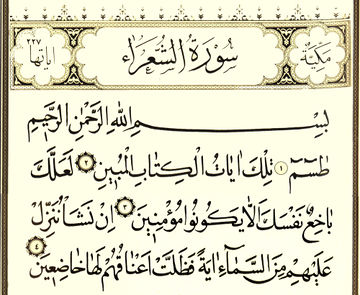 مكية سورة الشعراء آياتها ٢٢٧
بِسْمِ اللهِ الرَّحْمٰنِ الرَّحِيمِ
طسٓمٓ ١ تِلْكَ اٰيَاتُ الْكِتَابِ الْمُبِينِ ٢ لَعَلَّكَ
بَاخِعٌ نَفْسَكَ اَلَّا يَكُونُوا مُؤْمِنِينَ ٣ اِنْ نَشَأْ نُنَزِّلْ
عَلَيْهِمْ مِنَ السَّمَٓاءِ اٰيَةً فَظَلَّتْ اَعْنَاقُهُمْ لَهَا خَاضِعِينَ ٤